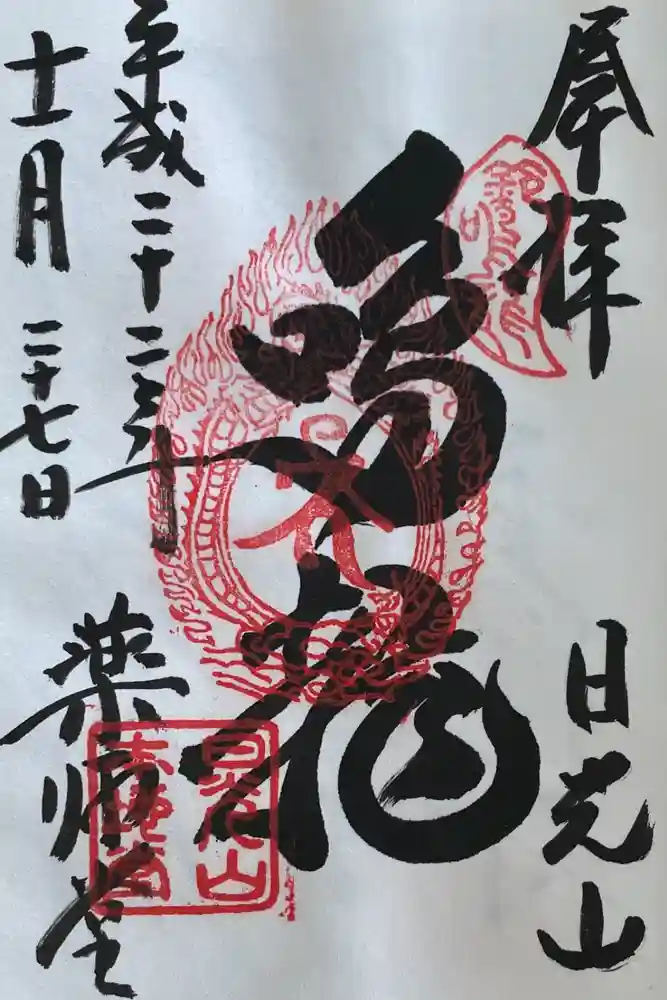 奉拝
日光山
鳴龍
平成二十二年
十一月二十七日
薬師堂
日光山
本地堂